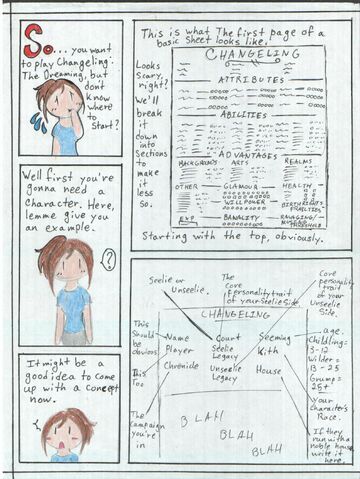 So... you want
to play Changeling:
The Dreaming, but
dont
know
where
to
start?
Well first you're
gonna need a
character. Here,
lemme give you
an example.
?
It might be a
good idea to come
up with a concept
now.
This is what The first page of a
basic sheet looks like.
Looks
Scary,
right?
We'll
break
it
down
into
Sections
to
make
it
less
so.
CHANGELING
ATTRIBUTES
ABILITIES
ADVANTAGES
BACKGROUNDS ARTS REALMS
OTHER GLAMOUR HEALTH
WILLPOWER
BIRTHRIGHTS
FRAILTIES
EXP BANALITY
THRESHOLD
Starting with the top, obviously.
Seelie or
Unseelie.
The
Core
Personality trait
of your Seelie Side.
Core
personality
trait
of your
Unseelie
Side.
CHANGELING
This
Should
be
obvious
This
Too
The
Campaign
you're
in
Name Court Seeming
Player Seelie
Legacy Kith
Chronicle Unseelie
Legacy House
Age.
Childling=
3-12
Wilder=
13-25
Grump=
25+
Your
character's
Race.
If they
run with a
noble house
write it
here.
BLAH
BLAH
BLAH